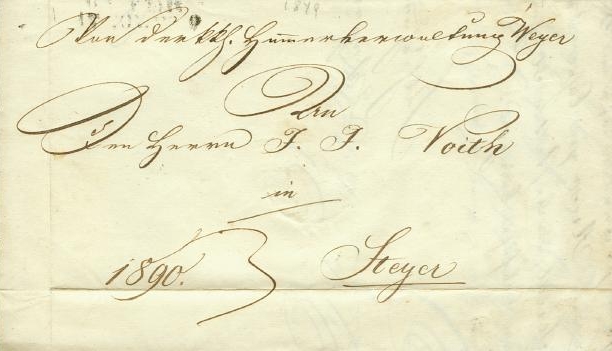 Von der kk. Hammerverwaltung Weyer
An
Den Herrn J. J. Voith
in
1890. Steyer